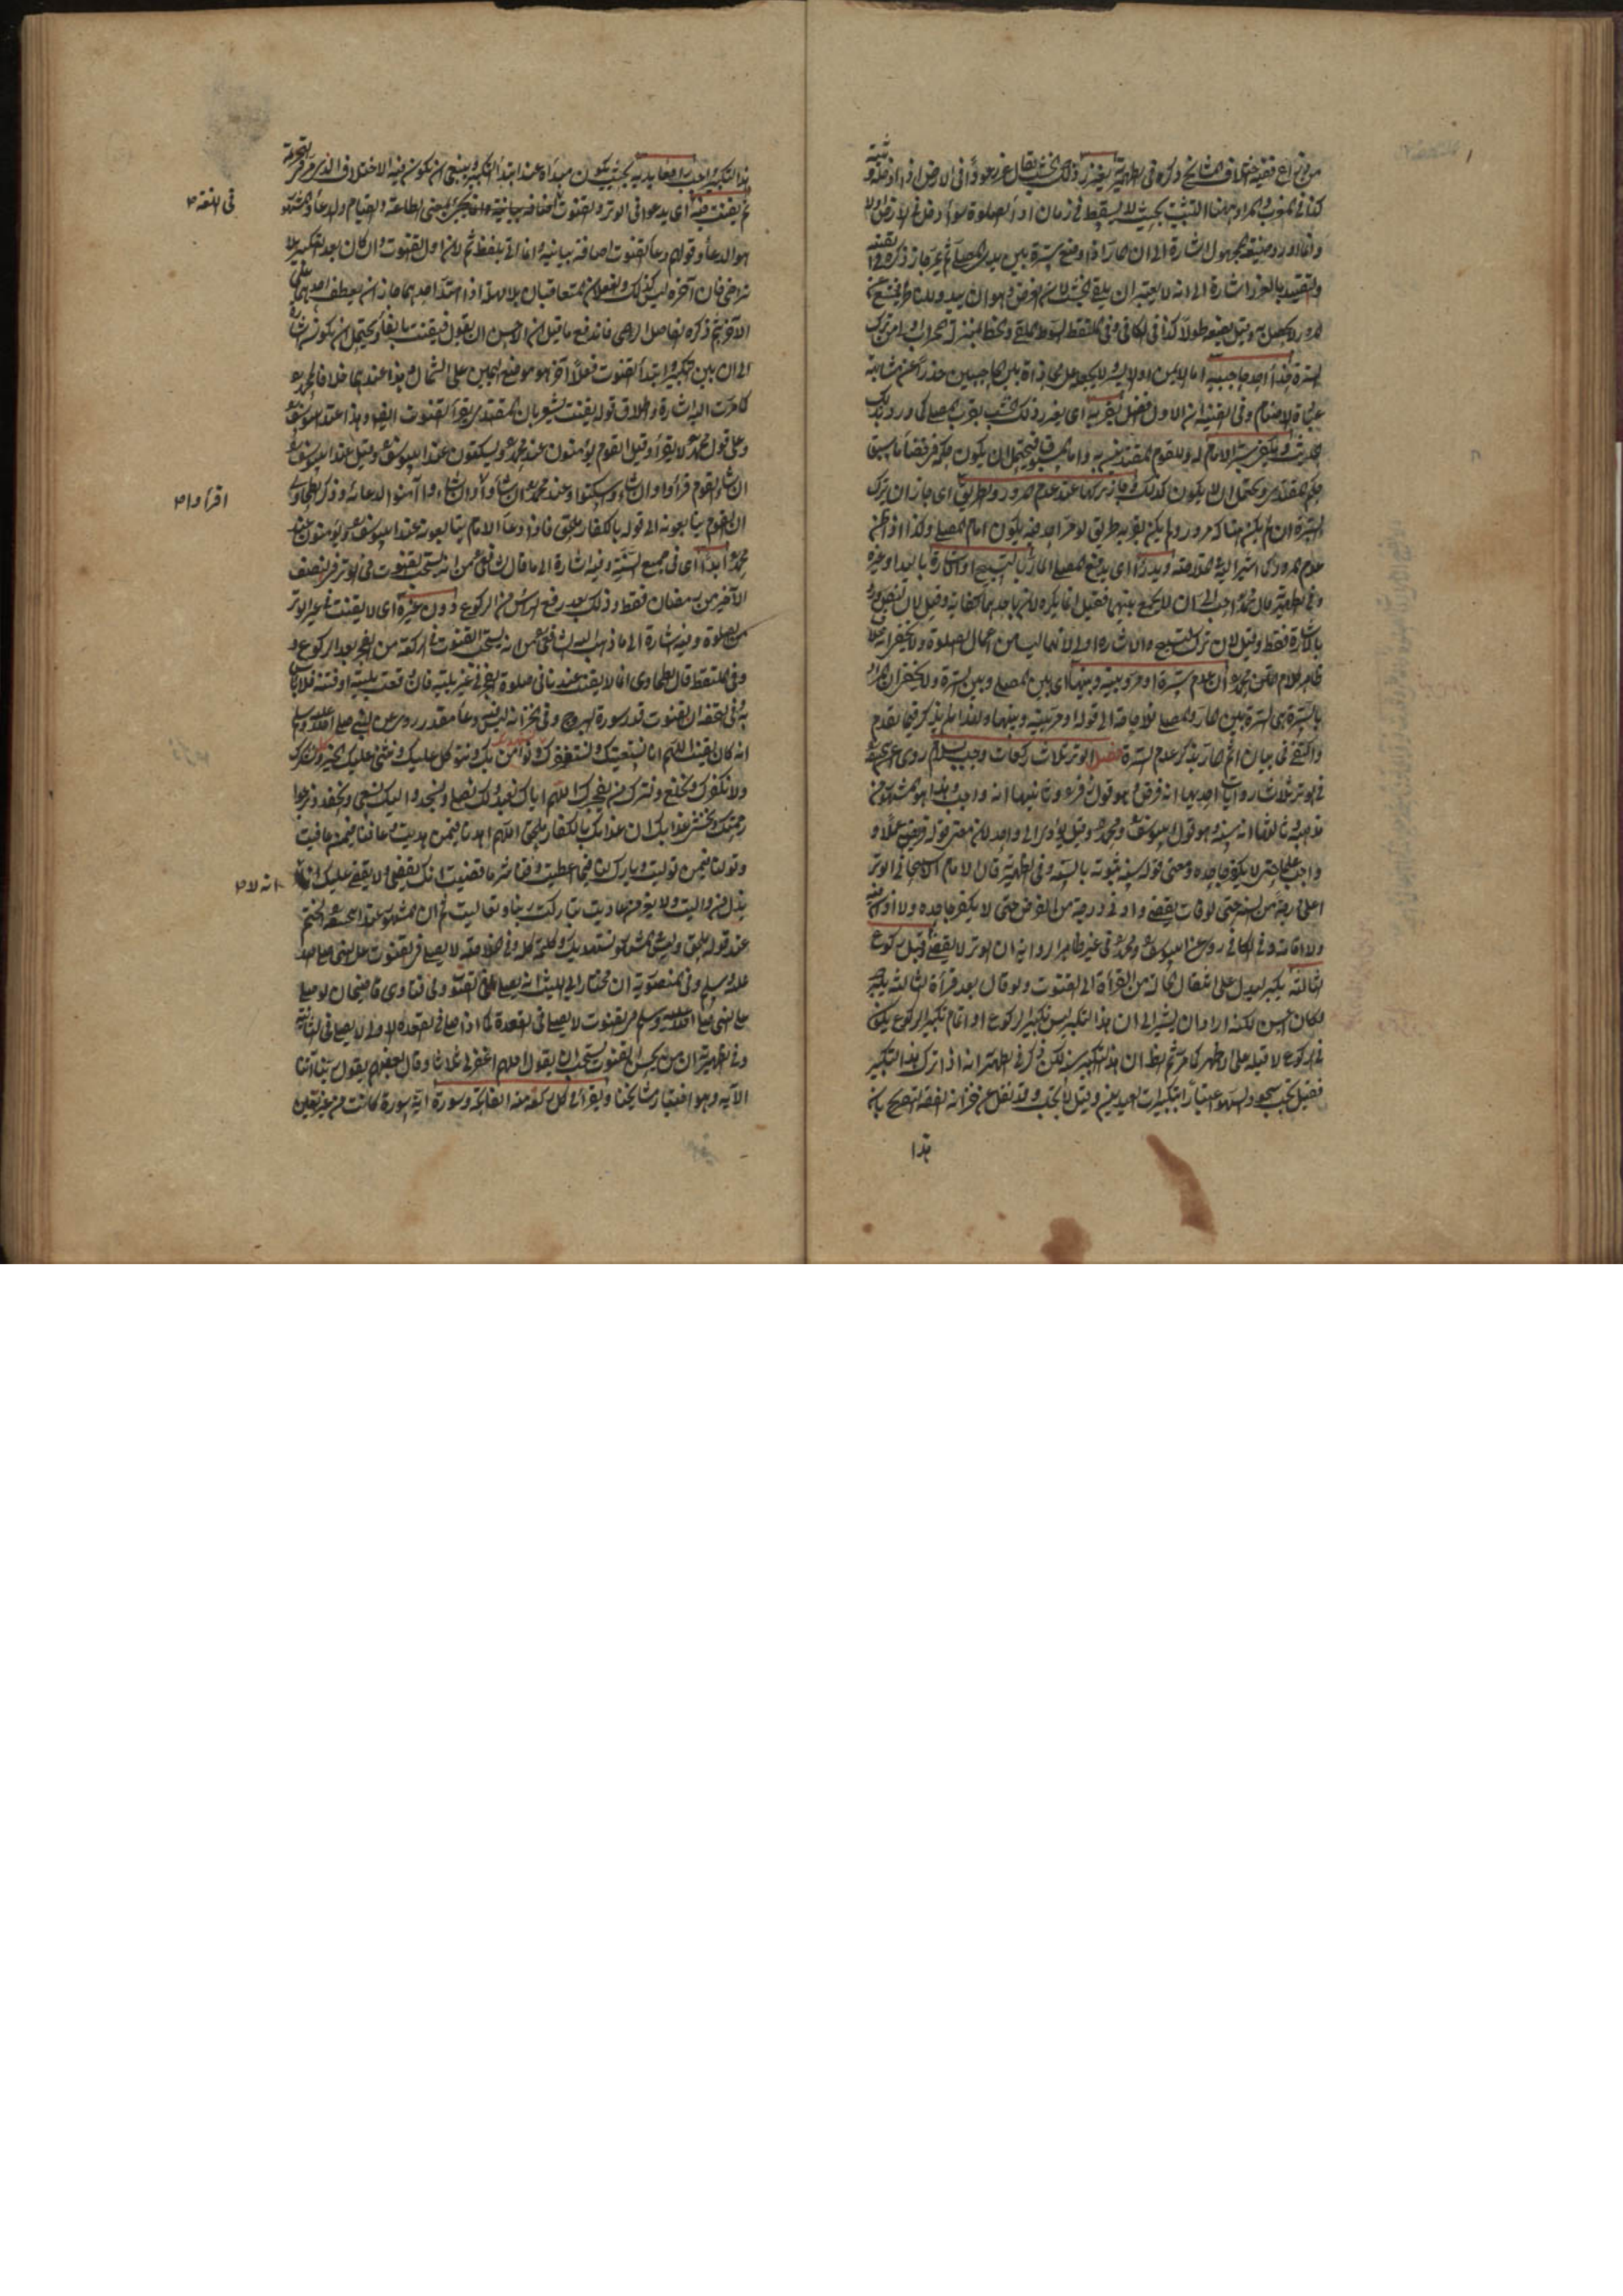 من نزاع ففيه اختلاف المشايخ وذكره في الظهيرية يغرز ذلك الخشب يقال غرز عودًا في الارض اذا ادخله وثبته
كذا في المغرب والمراد ههنا التثبيت بحيث لا يسقط في زمان اداء الصلوة سواء دخل في الارض او لا
وانما اورد صيغة المجهول اشارة الى ان المار اذا وضع سترة بين يدي المصلي ثم يمر جاز ذكره في القنية
والتقييد بالغرز اشارة الى انه لا يعتبر ان يلقي الخشب لان الغرض وهو ان يبدو للناظر فيمتنع عن
المرور لا يحصل به وقيل يضعه طولًا كذا في الكافي وفي الملتقط السوط الملقى والخط بمنزلة المحراب وان ترك
السترة حذاء احد حاجبيه اما الايمن او الايسر ولا يجعل على محاذاة بين الحاجبين حذرًا عن مشابهة
عبدة الاصنام وفي القنية ان الاول افضل بقربه اى يغرز ذلك الخشب بقرب المصلي كما ورد بذلك
الحديث ويكفي سترة الامام له وللقوم المقتدين به واما المسبوق فيحتمل ان يكون حكمه فيما سبق
حكم المقتدي ويحتمل ان لا يكون كذلك وجاز تركها عند عدم المرور والطريق اى جاز ان يترك
السترة ان لم يكن هناك مرور ولم يكن بقربه طريق لو مر احد فيه يكون امام المصلي وكذا اذا ظن
عدم المرور كما اشير اليه في الخلاصة ويدرأ اى يدفع المصلي المار بالتسبيح او الاشارة باليد او غيره
وفي الظهيرية قال محمد احب الى ان لا يجمع بينهما فقيل انما يكره لانه باحدهما كفاية وقيل بان النص ورد
بالاشارة فقط وقيل لان ترك التسبيح والاشارة اولى لانهما ليسا من اعمال الصلوة ولا يخفى انه خلاف
ظاهر الكلام المنقول عن محمد ان عدم سترة او مر بينه وبينها اى بين المصلي وبين السترة ولا يخفى ان المراد
بالسترة هي السترة بين المار والمصلي فلا حاجة الى قوله او مر بينه وبينها ولهذا لم يذكر فيما تقدم
واكتفى في بيان اثم المار بذكر عدم السترة فصل الوتر ثلاث ركعات وجب بسلام روى عن ابي حنيفة
في الوتر ثلاث روايات احديها انه فرض وهو قول زفر وثانيتها انه واجب وهذا هو المشهور من
مذهبه وثالثها انه سنة وهو قول ابي يوسف ومحمد وقيل يؤدى الى واحد لان معنى قوله فريضة عملًا و
واجب علمًا حتى لا يكفر جاحده ومعنى قوله سنة ثبوته بالسنة وفي الظهيرية قال الامام الاسبيجابي الوتر
اعلى درجة من السنة حتى لو فات يقضى وادنى درجة من الفرض حتى لا يكفر جاحده ولا اذان فيه
ولا اقامة وفي الكافي روى عن ابي يوسف ومحمد في غير ظاهر الرواية ان الوتر لا يقضى وقبل ركوع
الثالثة يكبر ليدل على انتقال حاله من القراءة الى القنوت ولو قال بعد قراءة الثالثة يكبر
لكان احسن لكنه اراد ان يشير الى ان هذا التكبير ليس تكبير الركوع اذ اتمام تكبير الركوع يكون
في الركوع لا قبله على الاظهر كما مر ثم الظ ان هذا التكبير سنة لكن ذكر في الظهيرية انه اذا ترك هذا التكبير
فقيل يجب سجود السهو اعتبارًا بتكبيرات العيدين وقيل لا يجب وقد نقل عن خزانة الفقه التصريح بانه
هذا
هذا التكبير واجب رافعًا يديه بحيث يكون مبدأه عند ابتداء التكبير وينبغي ان يكون فيه الاختلاف الذي مر في التحريمة
ثم يقنت فيه اى يدعو في الوتر والقنوت في اللغة يجئ بمعنى الطاعة والقيام والدعاء والمشهور
هو الدعاء وقولهم دعاء القنوت اضافة بيانية وانما اتى بلفظ ثم لان اول القنوت وان كان بعد التكبير بلا
تراخ فان آخره ليس كذلك والفعلان المتعاقبان بلا مهلة اذا امتد احدهما جاز ان يعطف احدهما على
الآخر بثم ذكره الفاضل الرضي فاندفع ما قيل ان الاحسن ان يقول فيقنت بالفاء ويحتمل ان يكون اشارة
الى ان بين التكبير وابتداء القنوت فعلًا آخر هو موضع اليمين على الشمال وهذا عندهما خلافًا لمحمد
كما مرت اليه اشارة واطلاق قوله يقنت يشعر بان المقتدي يقرأ القنوت ايضًا وهذا عند ابي يوسف
وعلى قول محمد لا يقرأ وقيل القوم يؤمنون عند محمد ويسكتون عند ابي يوسف وقيل عند ابي يوسف
ان شاء القوم قرأوا وان شاؤا سكتوا وعند محمد ان شاؤا قرأوا وان شاؤا آمنوا لدعائه وذكر الطحاوي
ان القوم يتابعونه الى قوله بالكفار ملحق فاذا دعا الامام يتابعونه عند ابي يوسف ويؤمنون عند
محمد ابدًا اى في جميع السنة وفيه اشارة الى ما قال الشافعي من انه يستحب القنوت في الوتر في النصف
الاخير من رمضان فقط وذلك بعد رفع الرأس من الركوع دون غيره اى لا يقنت في غير الوتر
من الصلوة وفيه اشارة الى ما ذهب اليه الشافعي من انه يستحب القنوت في الركعة من الفجر بعد الركوع و
وفي الملتقط قال الطحاوي انما لا يقنت عندنا في صلوة الفجر في غير بلية فان وقعت بلية او فتنة فلا بأس
به وفي التحفة ان القنوت قدر سورة البروج وفي الخزانة ليس دعاء مقدر روى عن النبي صلى الله عليه وسلم
انه كان يقنت اللهم انا نستعينك ونستغفرك ونؤمن بك ونتوكل عليك ونثني عليك الخير ونشكرك
ولا نكفرك ونخلع ونترك من يفجرك اللهم اياك نعبد ولك نصلي ونسجد واليك نسعى ونحفد ونرجوا
رحمتك ونخشى عذابك ان عذابك بالكفار ملحق اللهم اهدنا فيمن هديت وعافنا فيمن عافيت
وتولنا فيمن توليت وبارك لنا فيما اعطيت وقنا شر ما قضيت انك تقضي ولا يقضى عليك انه لا
يذل من واليت ولا يعز من عاديت تباركت ربنا وتعاليت ثم ان المشهور عند اصحابنا الختم
عند قوله ملحق وليس المشهور نستهديك وكلمة كله وفي الخلاصة لا يصلى في القنوت على النبي صلى الله
عليه وسلم وفي المنصورية ان مختار ابي الليث انه يصلى على في القنوت وفي فتاوى قاضيخان لو صلى
على النبي صلى الله عليه وسلم في القنوت لا يصلي في القعدة كما اذا صلى في القعدة الاولى لا يصلي في الثانية
وفي الظهيرية ان من لم يحسن القنوت يستحب ان يقول اللهم اغفر لي ثلاثًا وقال بعضهم يقول ربنا آتنا
الآية وهو اختيار مشايخنا ويقرأ في كل ركعة منه الفاتحة وسورة اية سورة كانت من غير تعيين
في اللغة
اقرأوا
انه لا